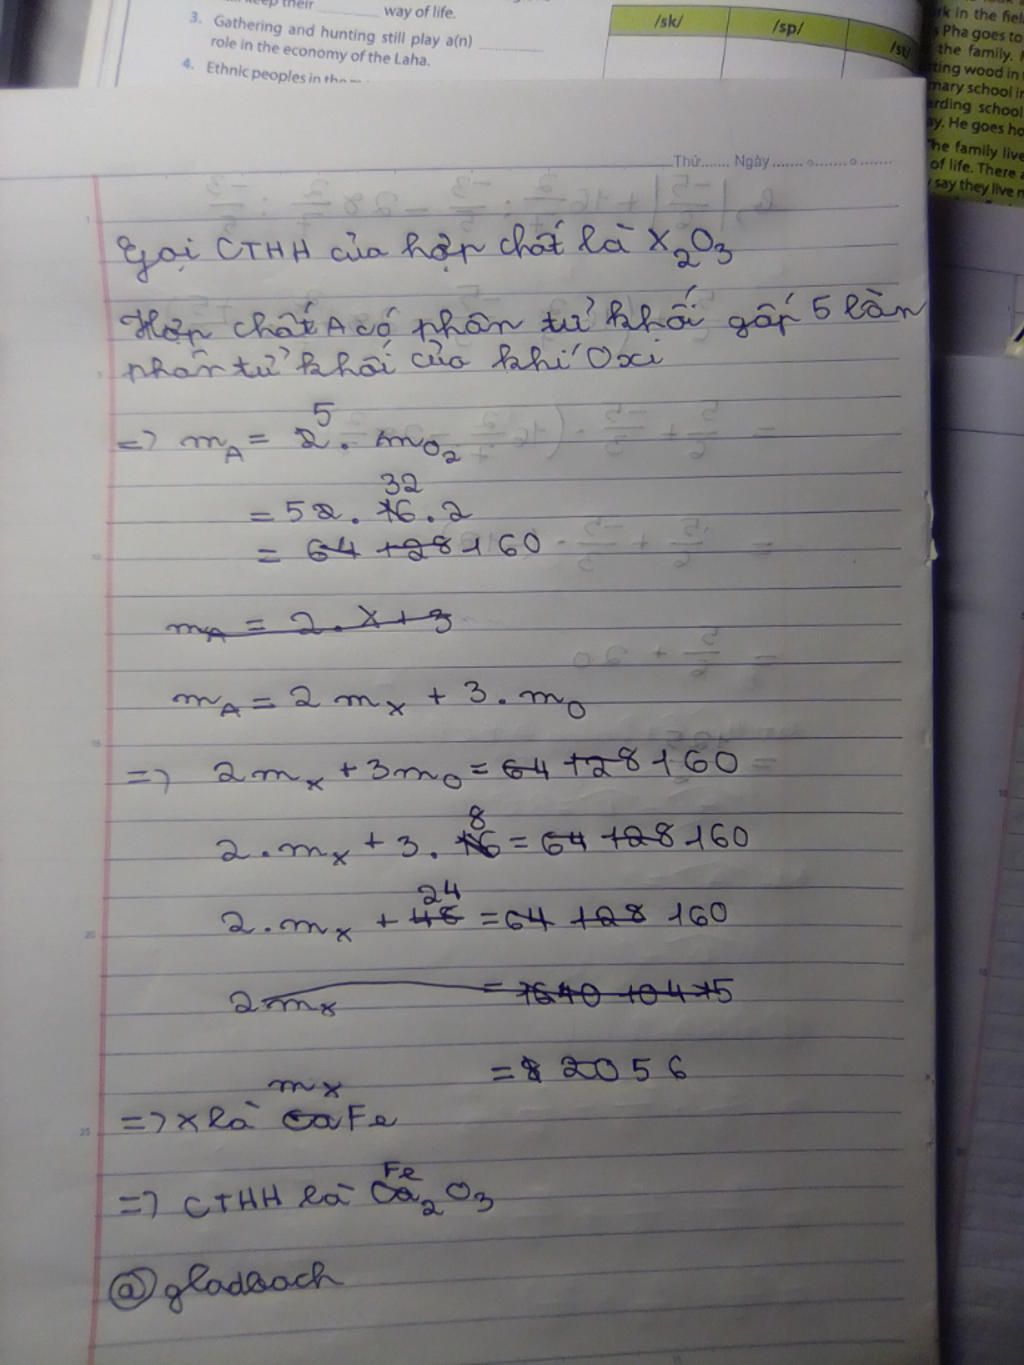 keep their ______ way of life.
3. Gathering and hunting still play a(n) ______
role in the economy of the Laha.
4. Ethnic peoples in the
/sk/ /sp/ /st/
rk in the fiel
Pha goes to
the family.
ting wood in
mary school in
arding school
ay. He goes ho
he family live
of life. There a
say they live n
Thứ....... Ngày
Gọi CTHH của hợp chất là X2O3
Hợp chất A có phân tử khối gấp 5 lần
phân tử khối của khí Oxi
5
=> mA = 2 . mO2
32
= 5 2 . 16 . 2
= 64 128 160
mA = 2 . X + 3
mA = 2 mx + 3 . mO
=> 2 mx + 3 mO = 64 128 160
8
2 . mx + 3 . 16 = 64 128 160
24
2 . mx + 48 = 64 128 160
2 mx =
mx = 56
=> X là Ca Fe
Fe
=> CTHH là Ca2O3
@gladbach